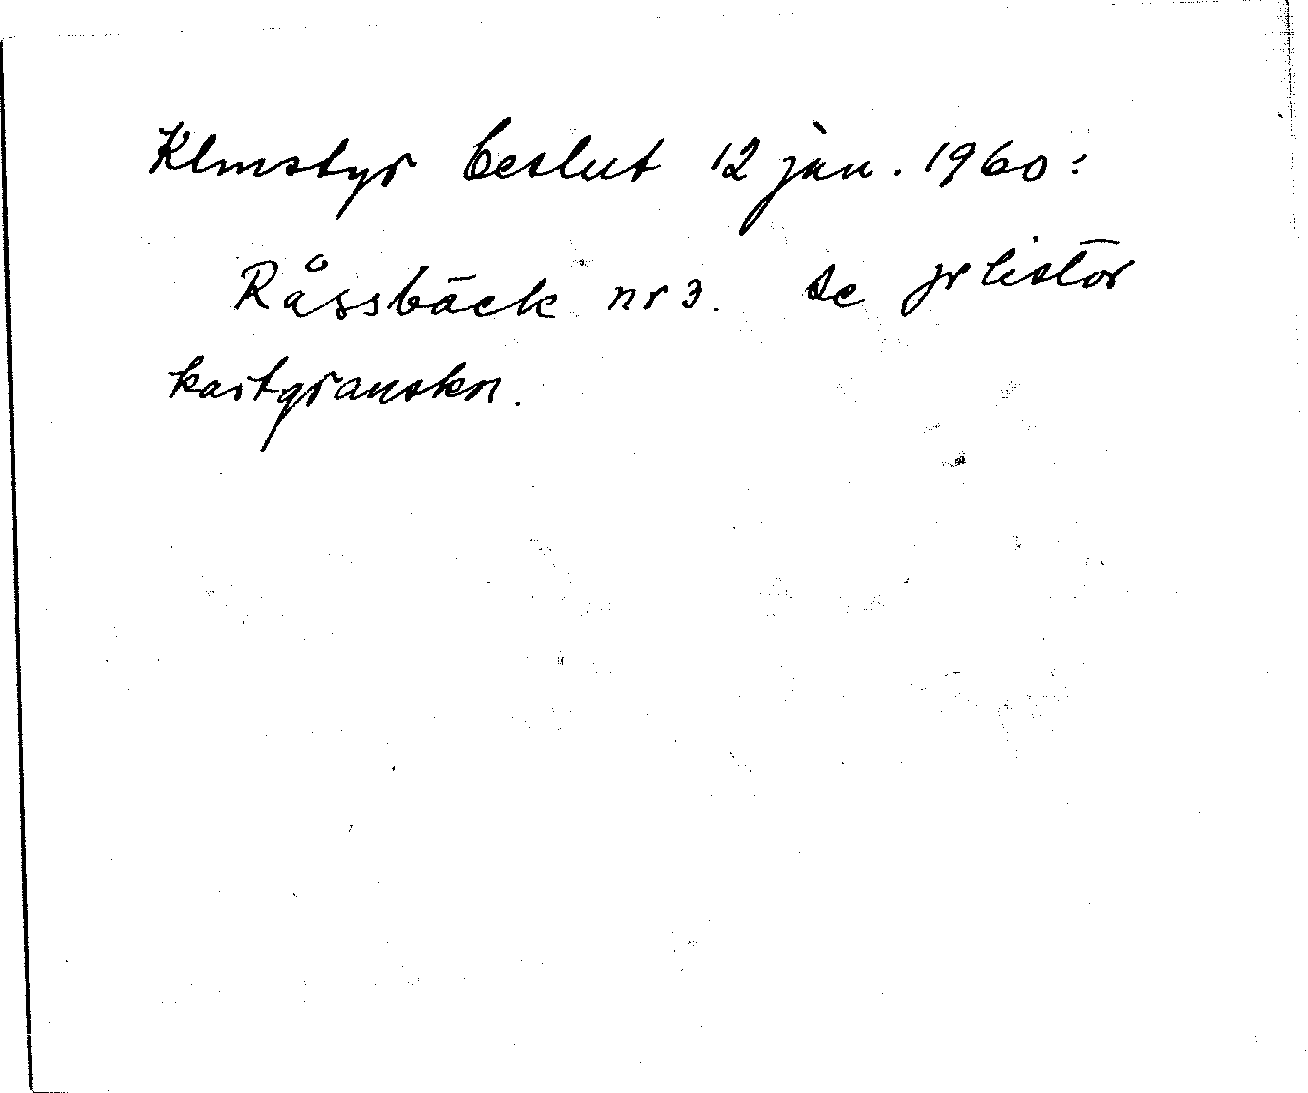 Klmstyr beslut 12 jan. 1960:
Råssbäck nr 3. se prlistor
kartgranskn.